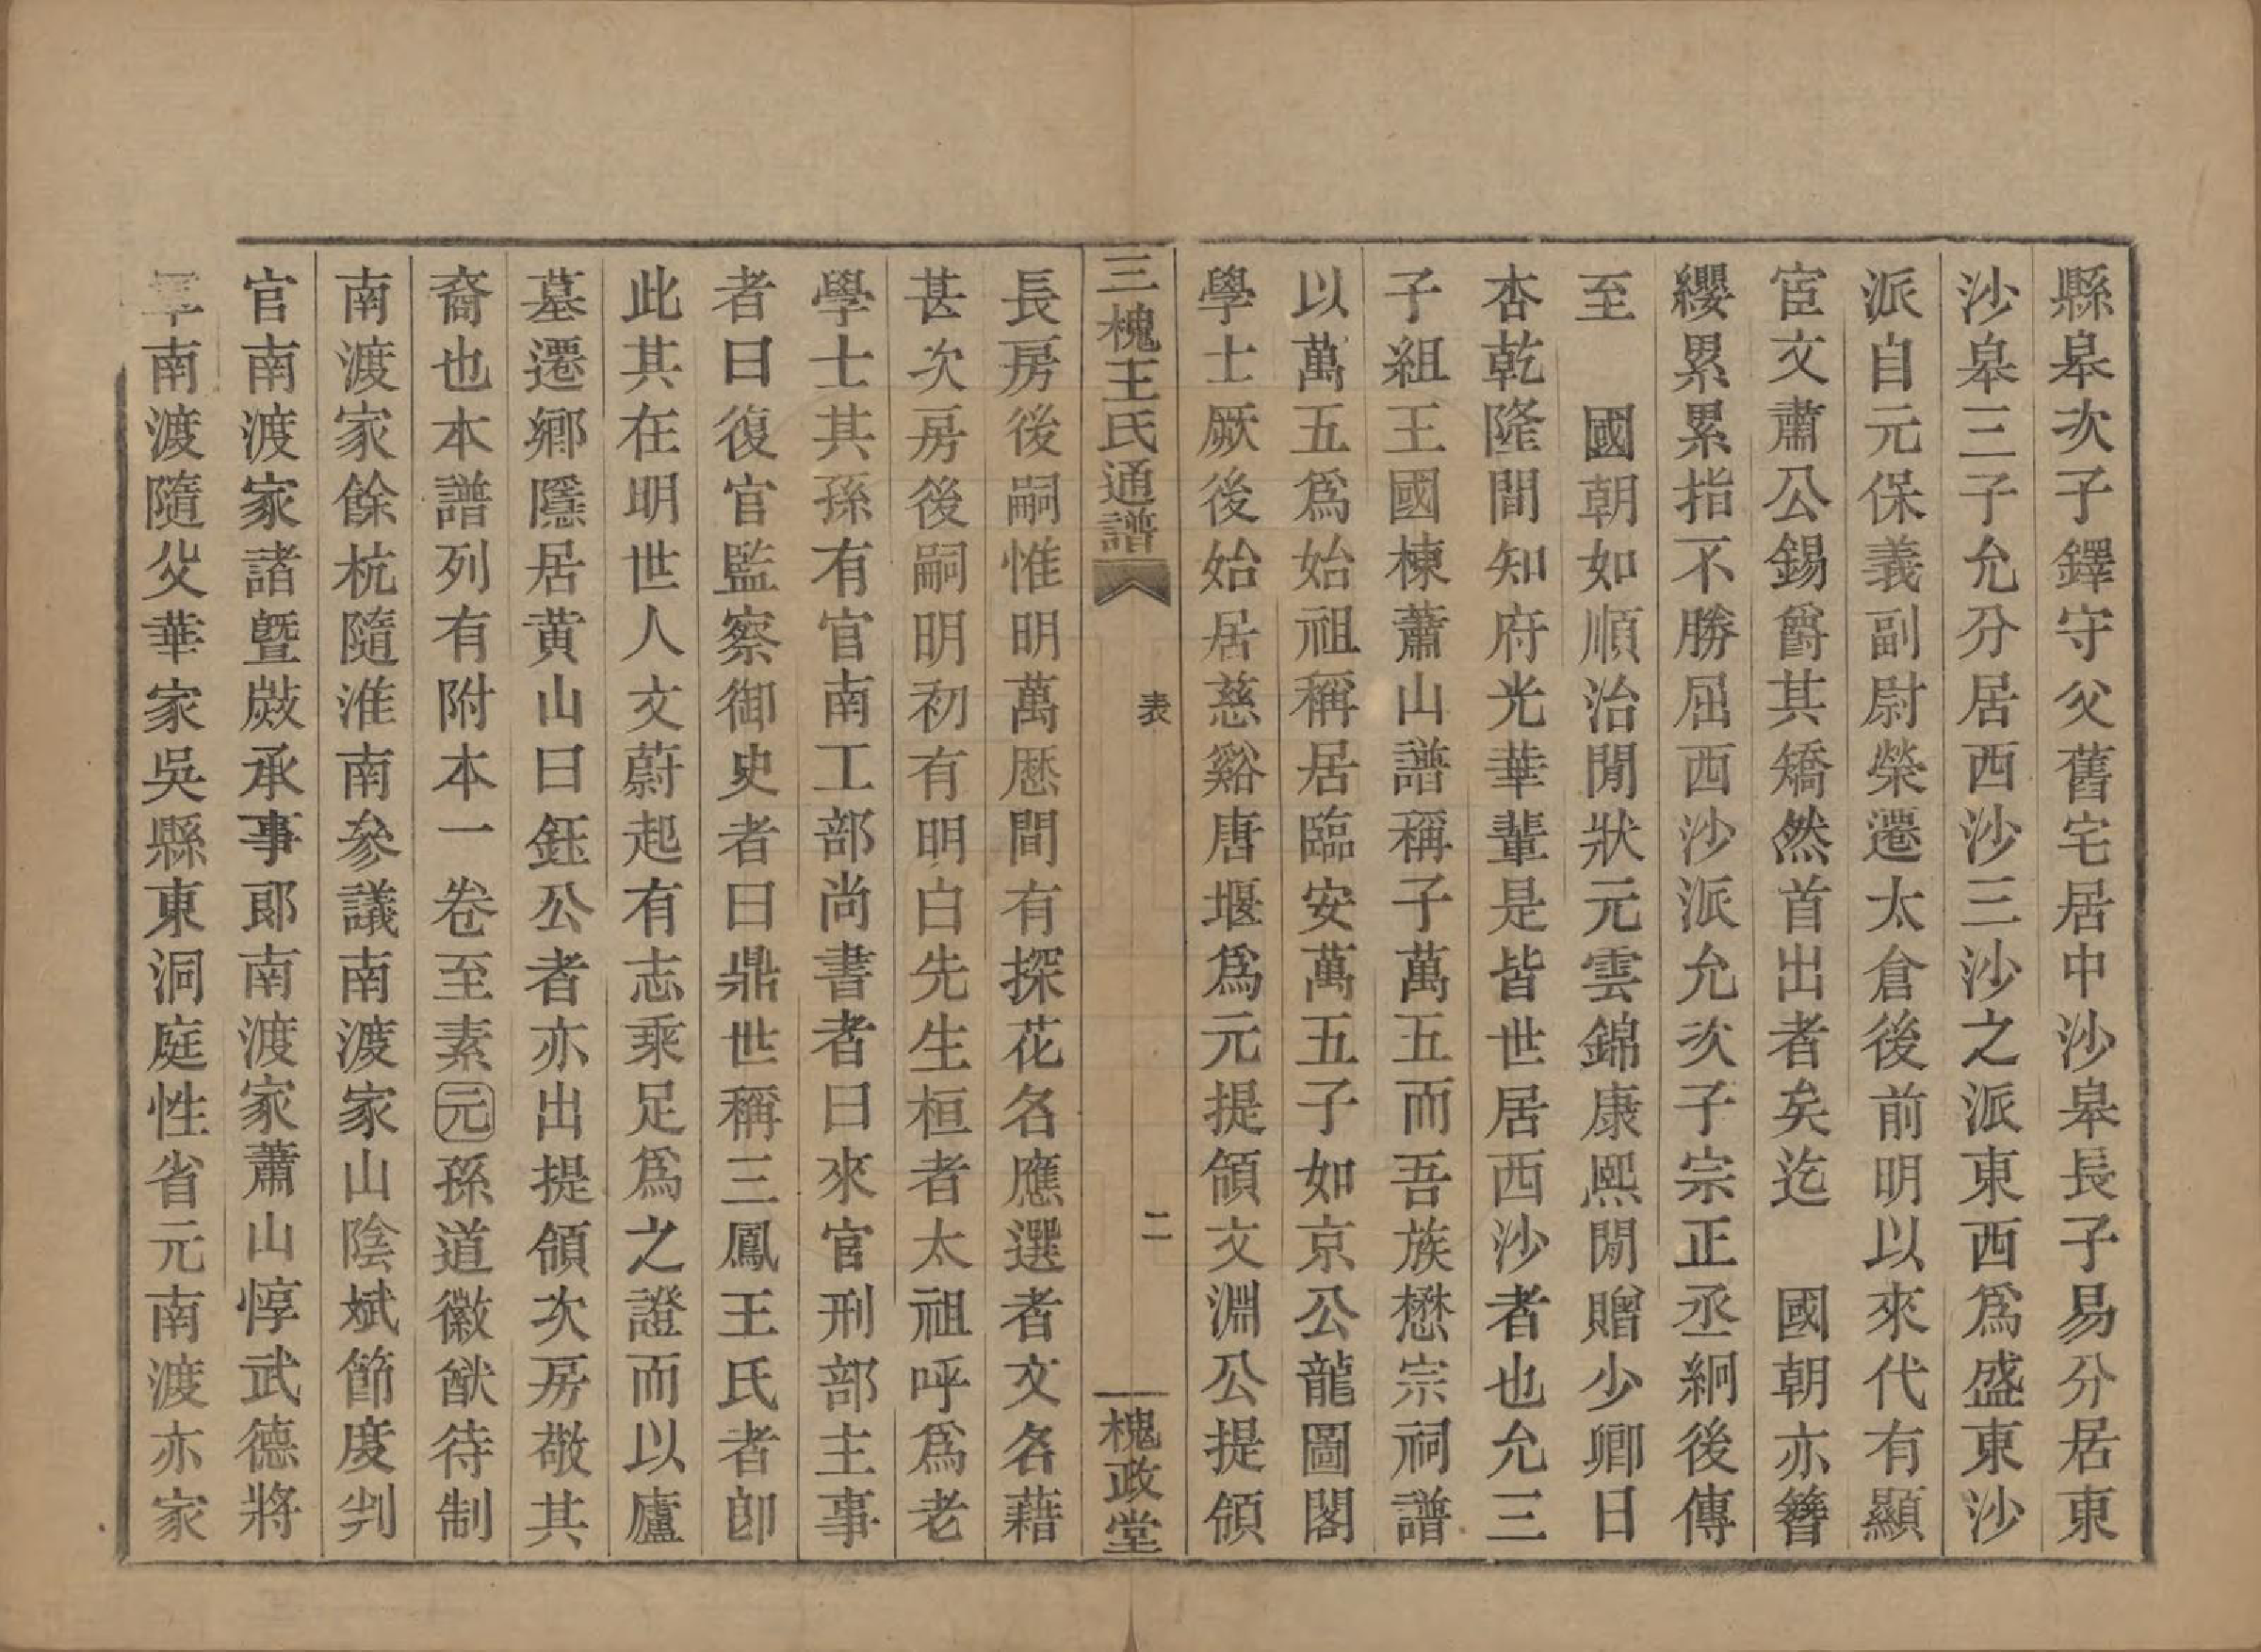 縣皋次子鐸守父舊宅居中沙皋長子易分居東
沙皋三子允分居西沙三沙之派東西爲盛東沙
派自元保義副尉榮遷太倉後前明以來代有顯
宦文肅公錫爵其矯然首出者矣迄　國朝亦簪
纓累累指不勝屈西沙派允次子宗正丞絅後傳
至　國朝如順治閒狀元雲錦康熙閒贈少卿日
杏乾隆間知府光華輩是皆世居西沙者也允三
子組王國棟蕭山譜稱子萬五而吾族懋宗祠譜
以萬五爲始祖稱居臨安萬五子如京公龍圖閣
學士厥後始居慈谿唐堰爲元提領文淵公提領
三槐王氏通譜　表　二　槐政堂
長房後嗣惟明萬歷間有探花名應選者文名藉
甚次房後嗣明初有明白先生桓者太祖呼爲老
學士其孫有官南工部尚書者曰來官刑部主事
者曰復官監察御史者曰鼎世稱三鳳王氏者卽
此其在明世人文蔚起有志乘足爲之證而以廬
墓遷鄉隱居黄山曰鈺公者亦出提領次房敬其
裔也本譜列有附本一卷至素元孫道徽猷待制
南渡家餘杭隨淮南參議南渡家山陰斌節度判
官南渡家諸暨㦛承事郎南渡家蕭山惇武德將
軍南渡隨父華家吳縣東洞庭性省元南渡亦家